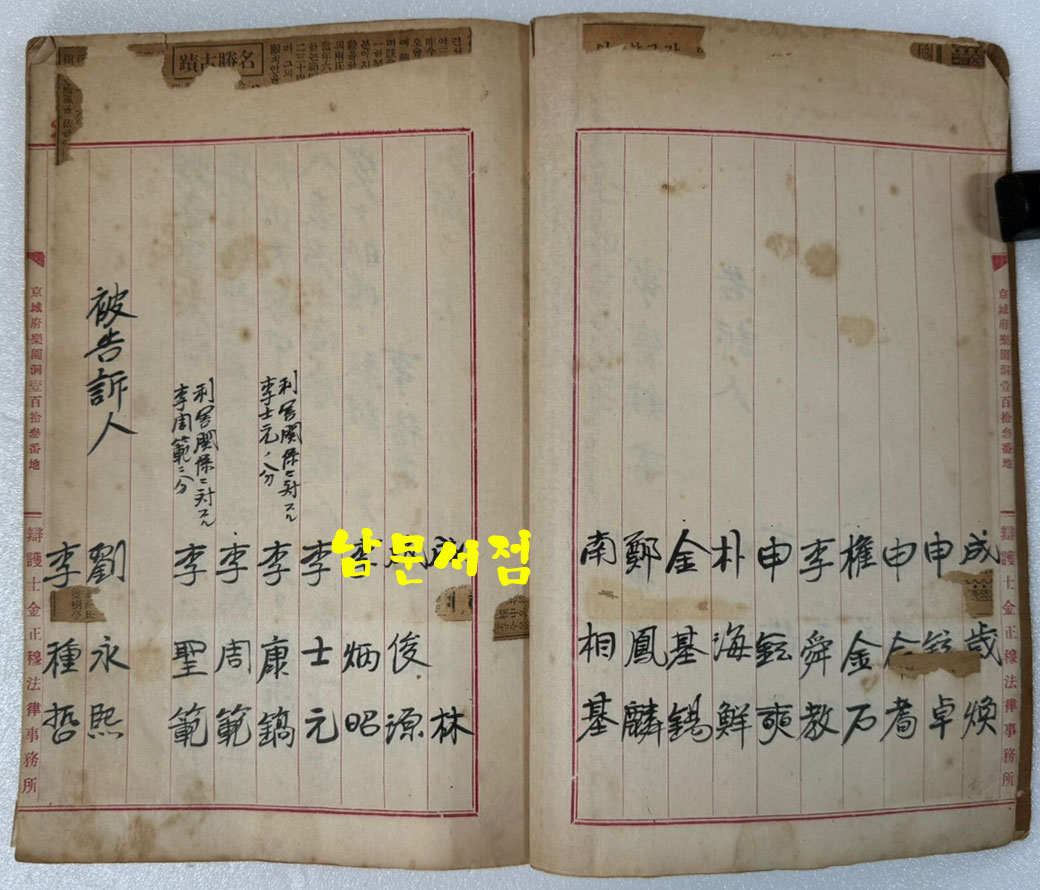 京城府樂園洞壹百拾叁番地
辯護士金正穆法律事務所
成歲煥
申鉉卓
申
權金石
李舜教
申鉉奭
朴海鮮
金基錫
鄭鳳麟
南相基
林
俊源
李炳昭
李士元
利害関係ニ対スル
李士元ノ分
李康鎬
李周範
利害関係ニ対スル
李周範ニ分
李聖範
被告訴人
劉永熙
李種哲
京城府樂園洞壹百拾叁番地
辯護士金正穆法律事務所
名勝古蹟
남문서점